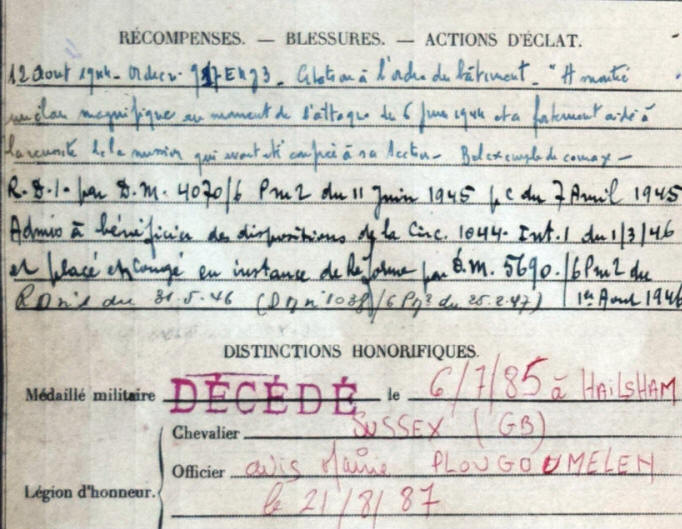 RÉCOMPENSES. — BLESSURES. — ACTIONS D'ÉCLAT.
12 Aout 1944 - Ordre n° EM/3 - Citation à l'ordre du bâtiment - "A montré
un élan magnifique au moment de l'attaque du 6 juin 1944 et a fortement aidé à
la réussite de la mission qui avait été confiée à sa Section - Bel exemple de courage -
R.D.1. par D.M. 4070/6 Pm2 du 11 Juin 1945 pc du 7 Avril 1945
Admis à bénéficier des dispositions de la Circ. 1044- Int.1 du 1/3/46
et placé en congé en instance de Réforme par D.M. 5690./6Pm2 du
R D n°1 du 31.5.46 (D n° 1038/6 du 25.2.47) 1er Aout 1946
DISTINCTIONS HONORIFIQUES.
Médaillé militaire DÉCÉDÉ le 6/7/85 à HAILSHAM
Chevalier SUSSEX (GB)
Officier avis Mairie PLOUGOUMELEN
Légion d'honneur. le 21/8/87